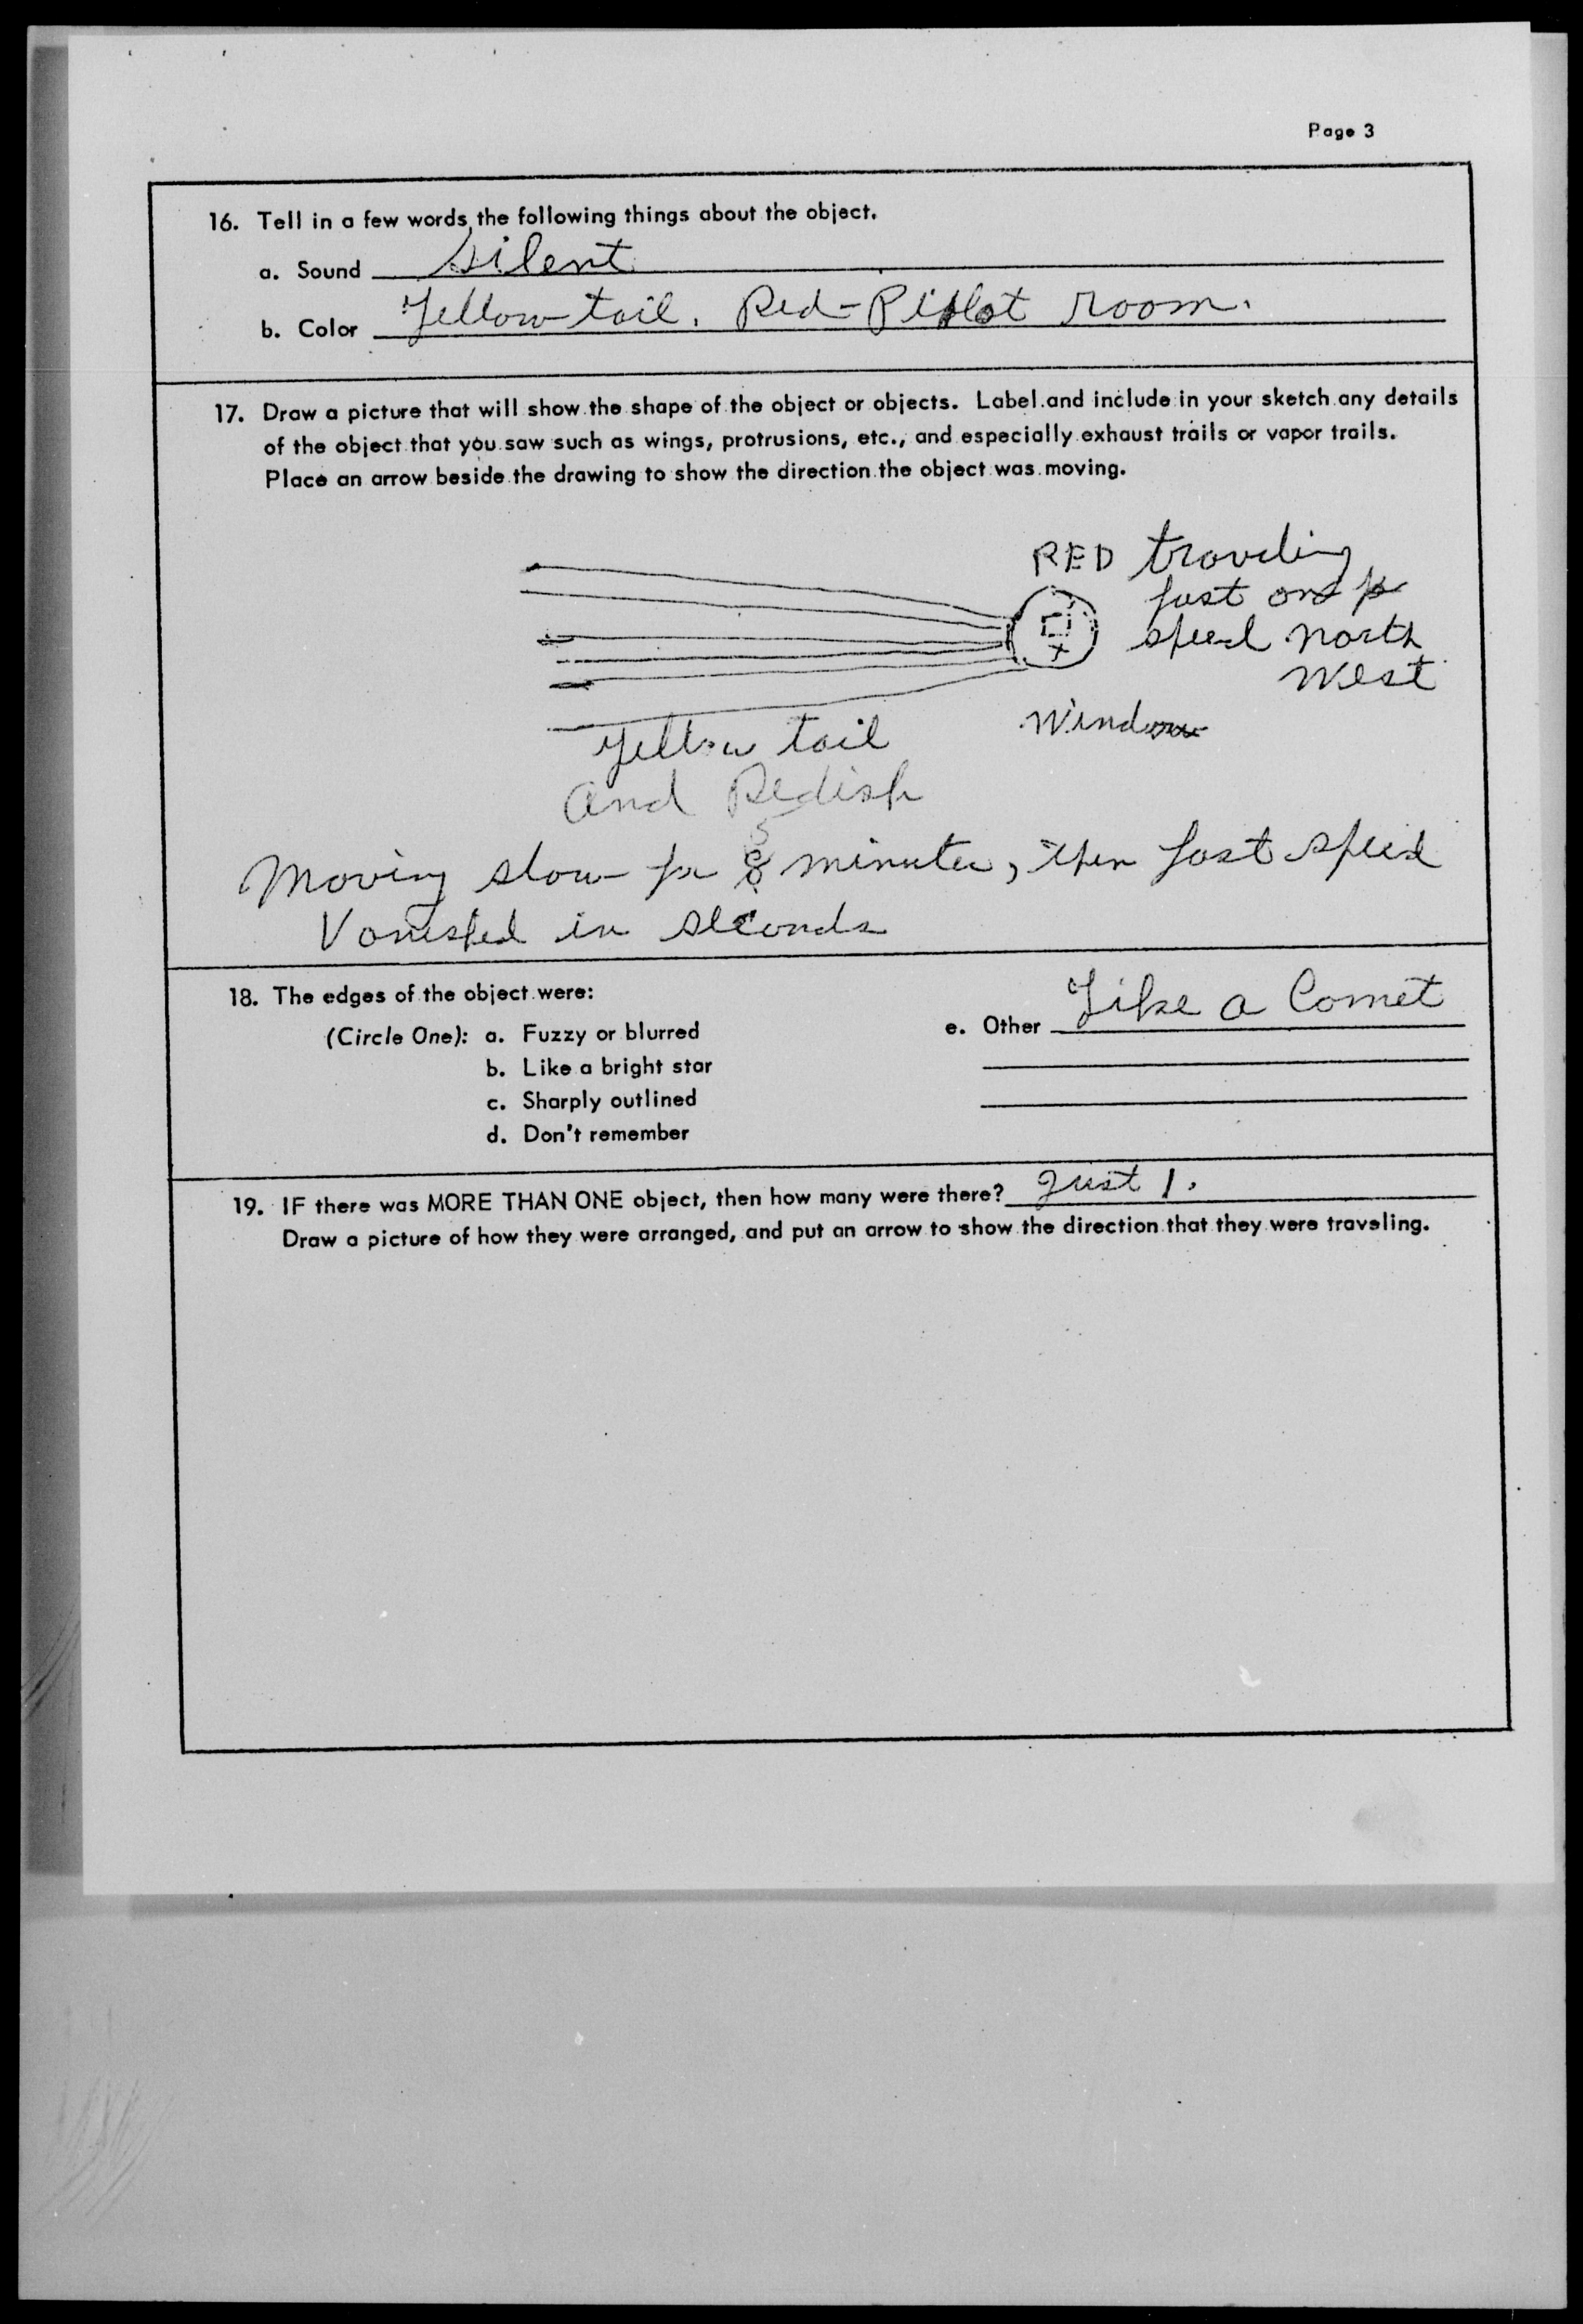 Page 3
16. Tell in a few words the following things about the object.
a. Sound Silent
b. Color Yellow tail. Red-Pilot room.
17. Draw a picture that will show the shape of the object or objects. Label and include in your sketch any details
of the object that you saw such as wings, protrusions, etc., and especially exhaust trails or vapor trails.
Place an arrow beside the drawing to show the direction the object was moving.
RED traveling
fast
speed north
West
Window
Yellow tail
and Redish
Moving slow for 8 minutes, then fast speed
Vanished in seconds
18. The edges of the object were:
(Circle One): a. Fuzzy or blurred
b. Like a bright star
c. Sharply outlined
d. Don't remember
e. Other Like a Comet
19. IF there was MORE THAN ONE object, then how many were there? Just 1.
Draw a picture of how they were arranged, and put an arrow to show the direction that they were traveling.